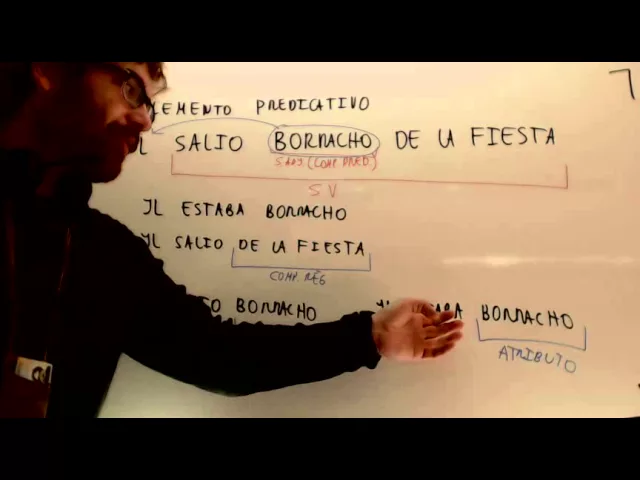 LEMENTO PREDICATIVO
L SALIO BORRACHO DE LA FIESTA
S.ADJ. (COMP. PRED.)
SV
JL ESTABA BORRACHO
JL SALIO DE LA FIESTA
COMP. REG
BORRACHO BORRACHO
ATRIBUTO